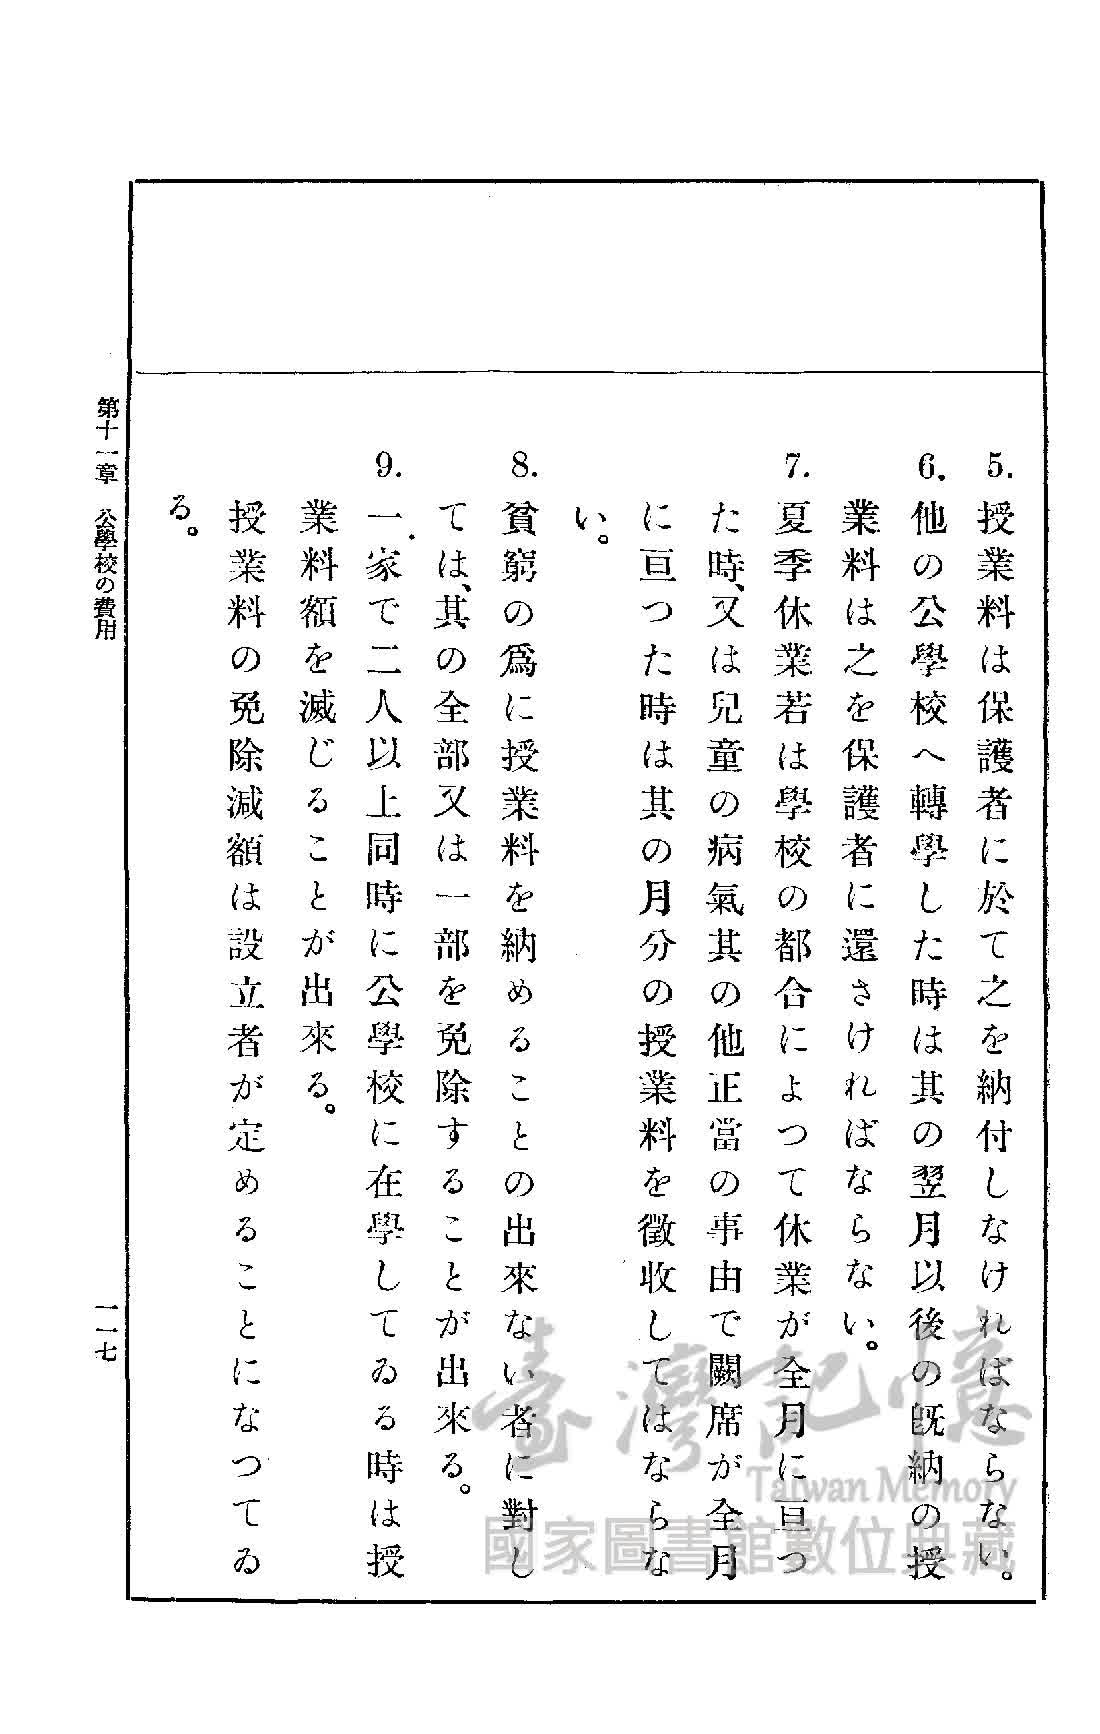 5. 授業料は保護者に於て之を納付しなければならない。
6. 他の公學校へ轉學した時は其の翌月以後の既納の授
業料は之を保護者に還さければならない。
7. 夏季休業若は學校の都合によつて休業が全月に亘つ
た時、又は兒童の病氣其の他正當の事由で闕席が全月
に亘つた時は其の月分の授業料を徵收してはならな
い。
8. 貧窮の爲に授業料を納めることの出來ない者に對し
ては、其の全部又は一部を免除することが出來る。
9. 一家で二人以上同時に公學校に在學してゐる時は授
業料額を減じることが出來る。
授業料の免除減額は設立者が定めることになつてゐ
る。
第十一章 公學校の費用
一一七
臺灣記憶
Taiwan Memory
國家圖書館數位典藏